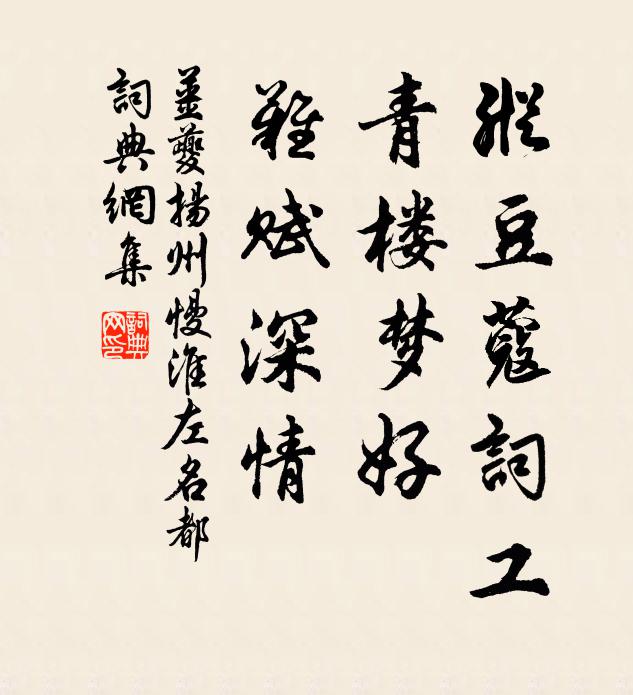 縱豆蔻詞工
青楼梦好
難赋深情
姜夔揚州慢淮左名都
詞典網集
詞典网印